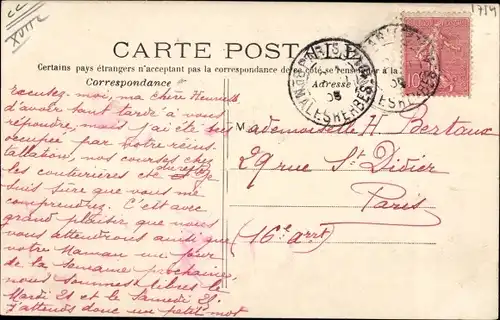 CC
XVIIe
1714
CARTE POSTALE
Certains pays étrangers n'acceptant pas la correspondance de ce côté, se renseigner à la
Correspondance
Adresse
PARIS
MALESHERBES
05
10
Excusez-moi, ma chère Henriette
d'avoir tant tardé à vous
répondre, mais j'ai été très
occupée par notre réins-
tallation, nos courses chez
les couturières etc Je
suis sûre que vous me
comprendrez. C'est avec
grand plaisir que nous
vous attendrons ainsi que
votre Maman un jour
de la semaine prochaine,
nous sommes libres le
Mardi 21 et le Samedi 25.
J'attends donc un petit mot
M
Mademoiselle H. Bertaux
29 rue St Didier
Paris
(16e arrt)